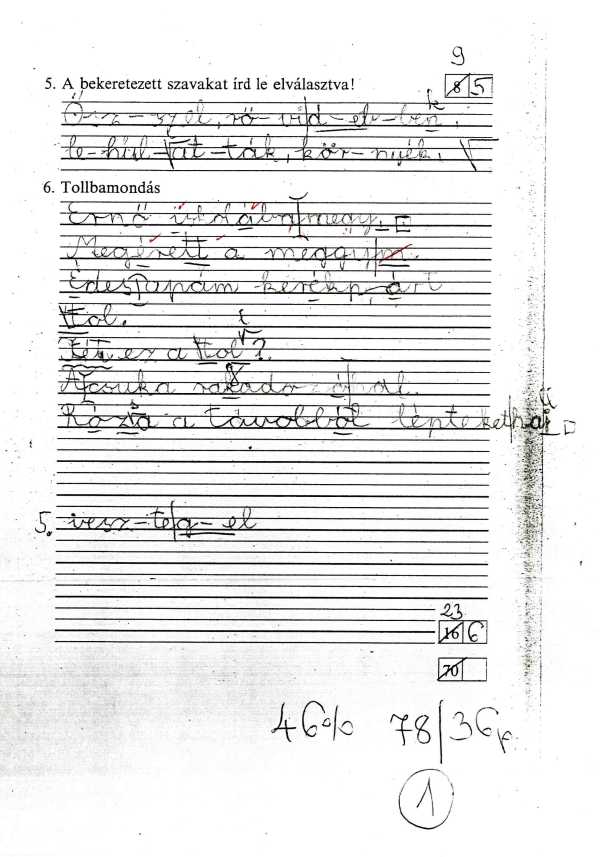 9
5. A bekeretezett szavakat írd le elválasztva!
8 5
k
Ő-z-szel, rö-vid-eb-ben,
le-hul-lat-ták, kör-nyék.
6. Tollbamondás
Ernő iskolába megy.
Megérett a meggy
Édesapám kerékp árt
tol.
Két ez a tol?
A csuka
Róza a távolból lépteket
5. vesz-teg-el
23
16 6
70
46% 78/36p
1